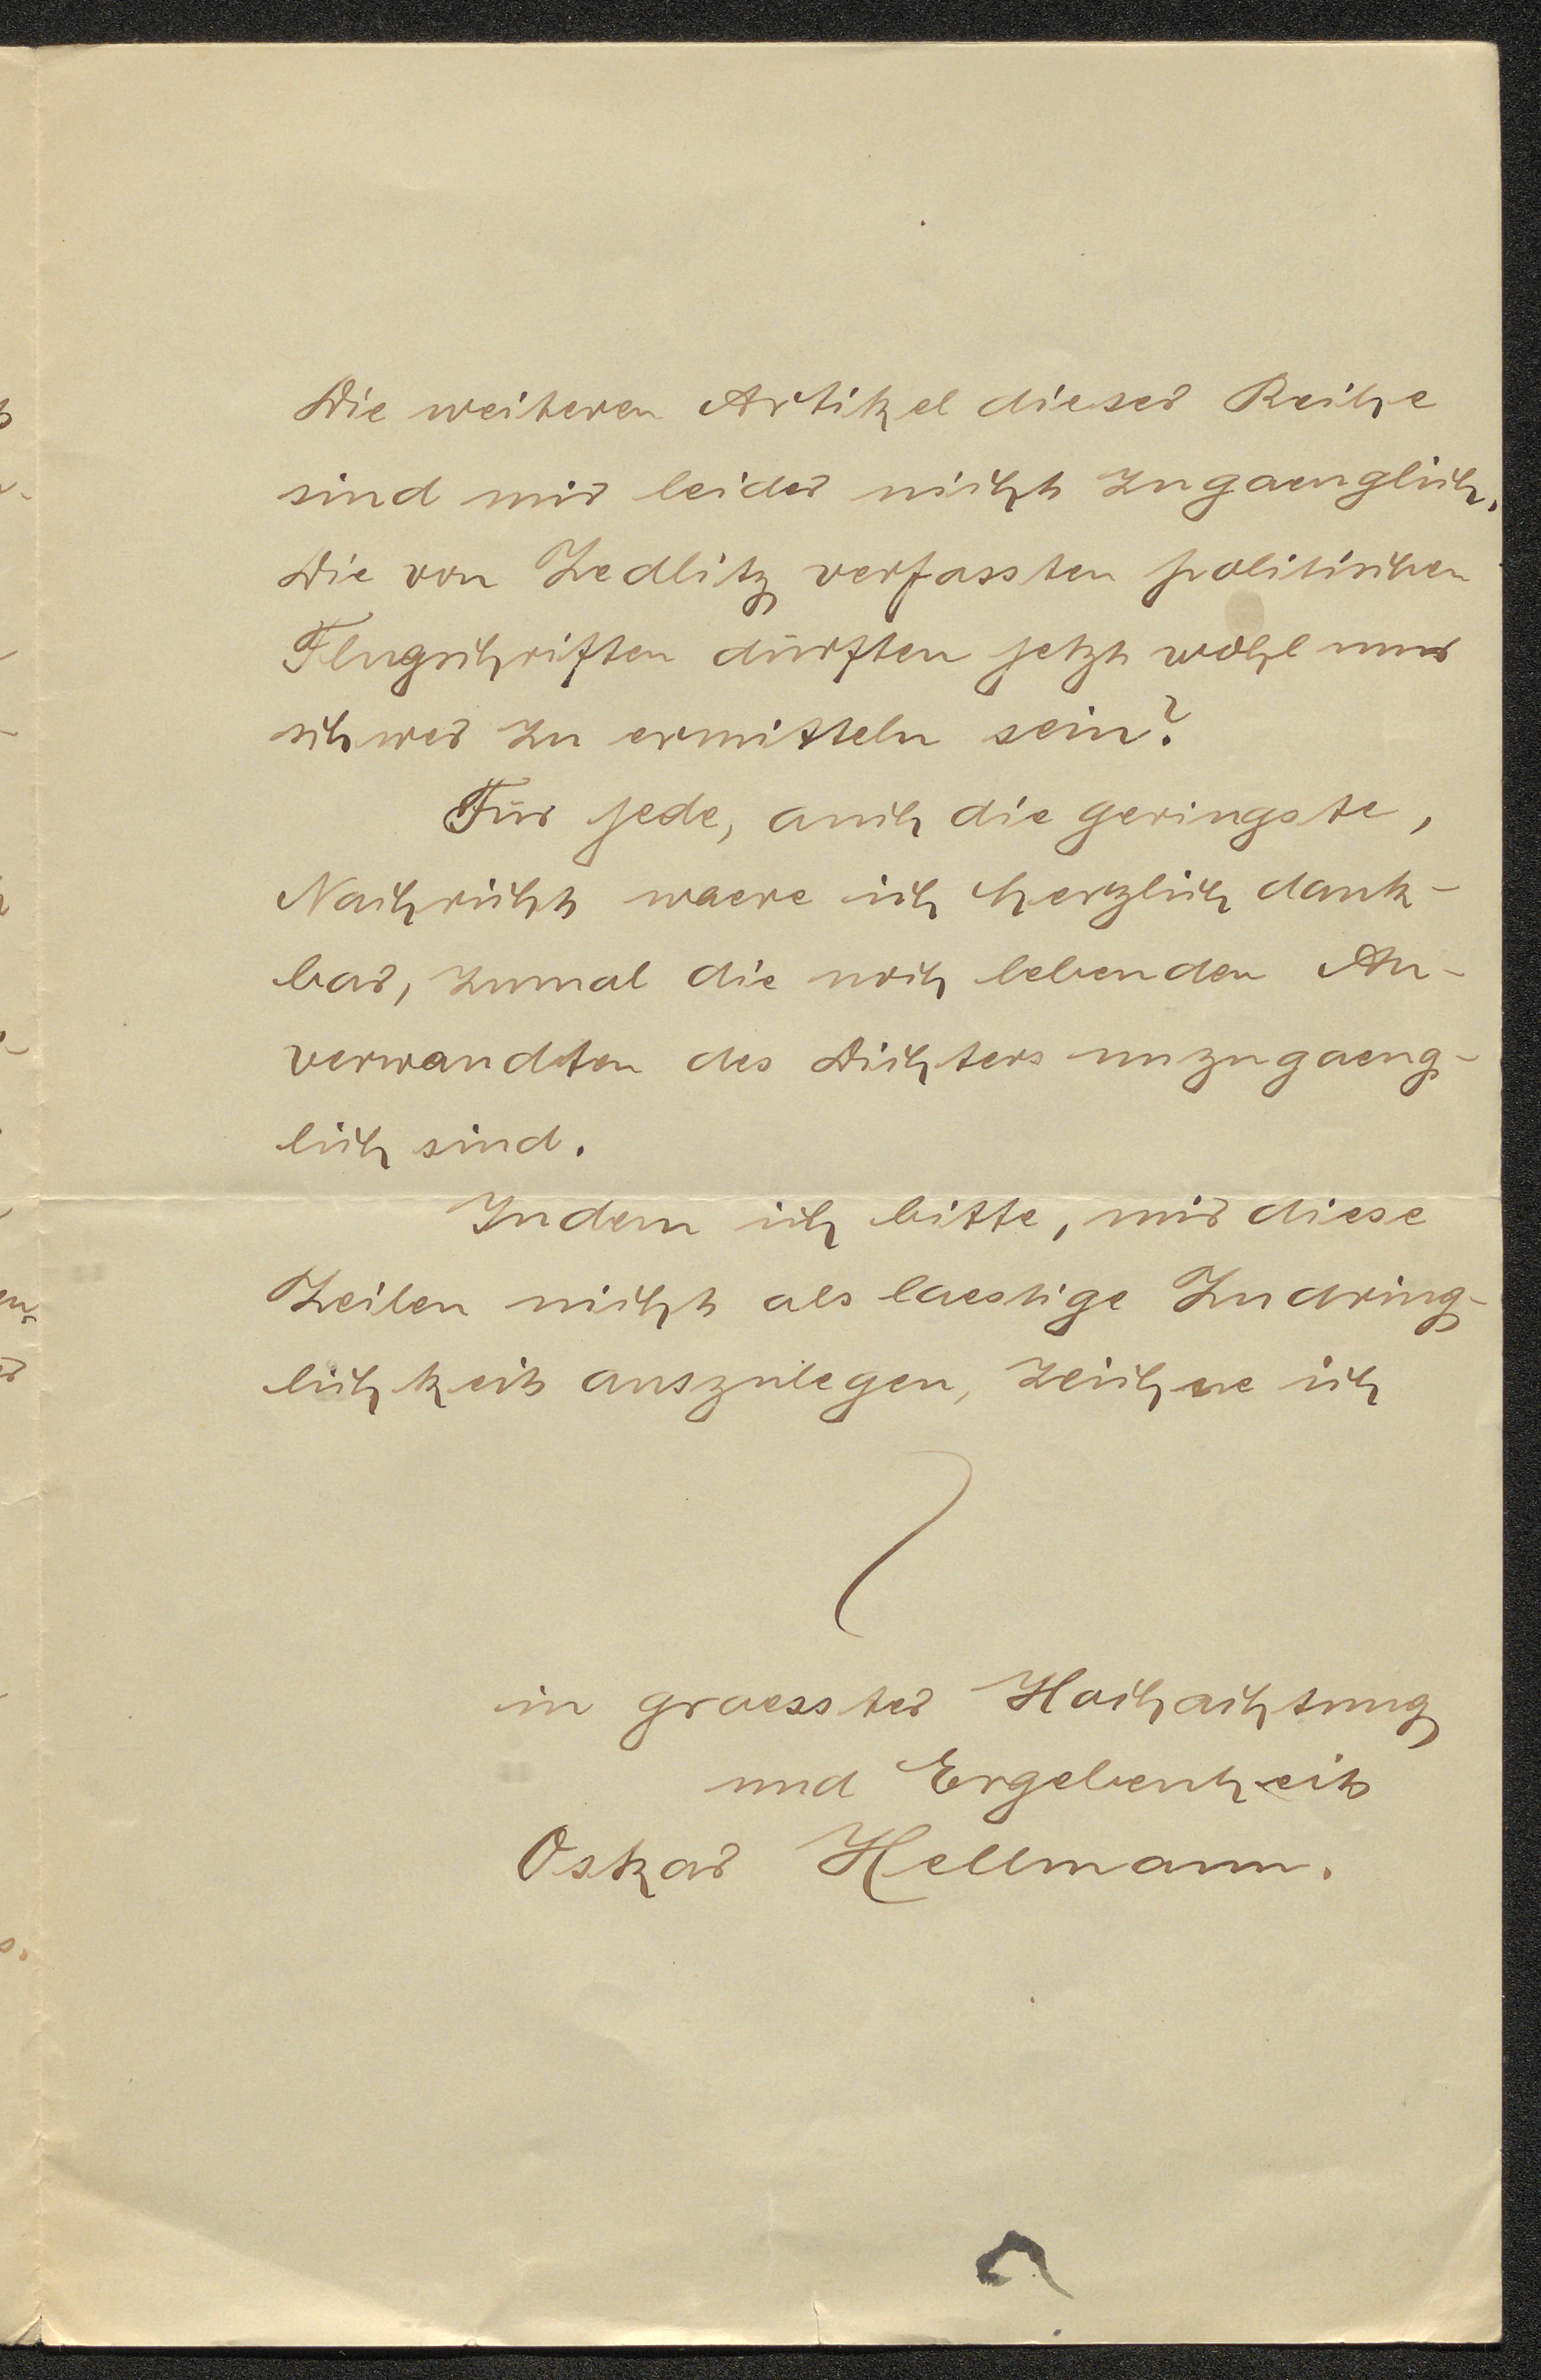 Die weiteren Artikel dieser Reihe
sind mir leider nicht zugaenglich.
Die von Zedlitz verfassten politischen
Flugschriften dürften jetzt wohl nur
schwer zu ermitteln sein?
Für jede, auch die geringste,
Nachricht waere ich herzlich dank-
bar, zumal die noch lebenden An-
verwandten des Dichters unzugaeng-
lich sind.
Indem ich bitte, mir diese
Zeilen nicht als laestige Zudring-
lichkeit auszulegen, zeichne ich
in groesster Hochachtung
und Ergebenheit
Oskar Hellmann.